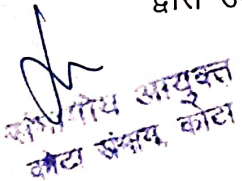 द्वारा
संभागीय आयुक्त
कोटा संभाग, कोटा